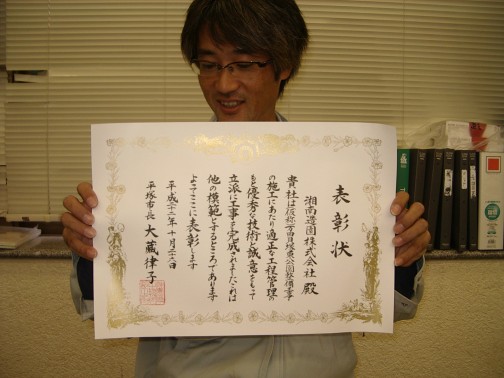 表彰状
湘南造園株式会社 殿
貴社は仮称万田貝塚東公園整備工事
の施工にあたり適正な工程管理の
もと優秀な技術と誠意をもって
立派に工事を完成されましたこれは
他の模範とするところであります
よってここに表彰します
平成二十二年十月二十八日
平塚市長 大藏律子